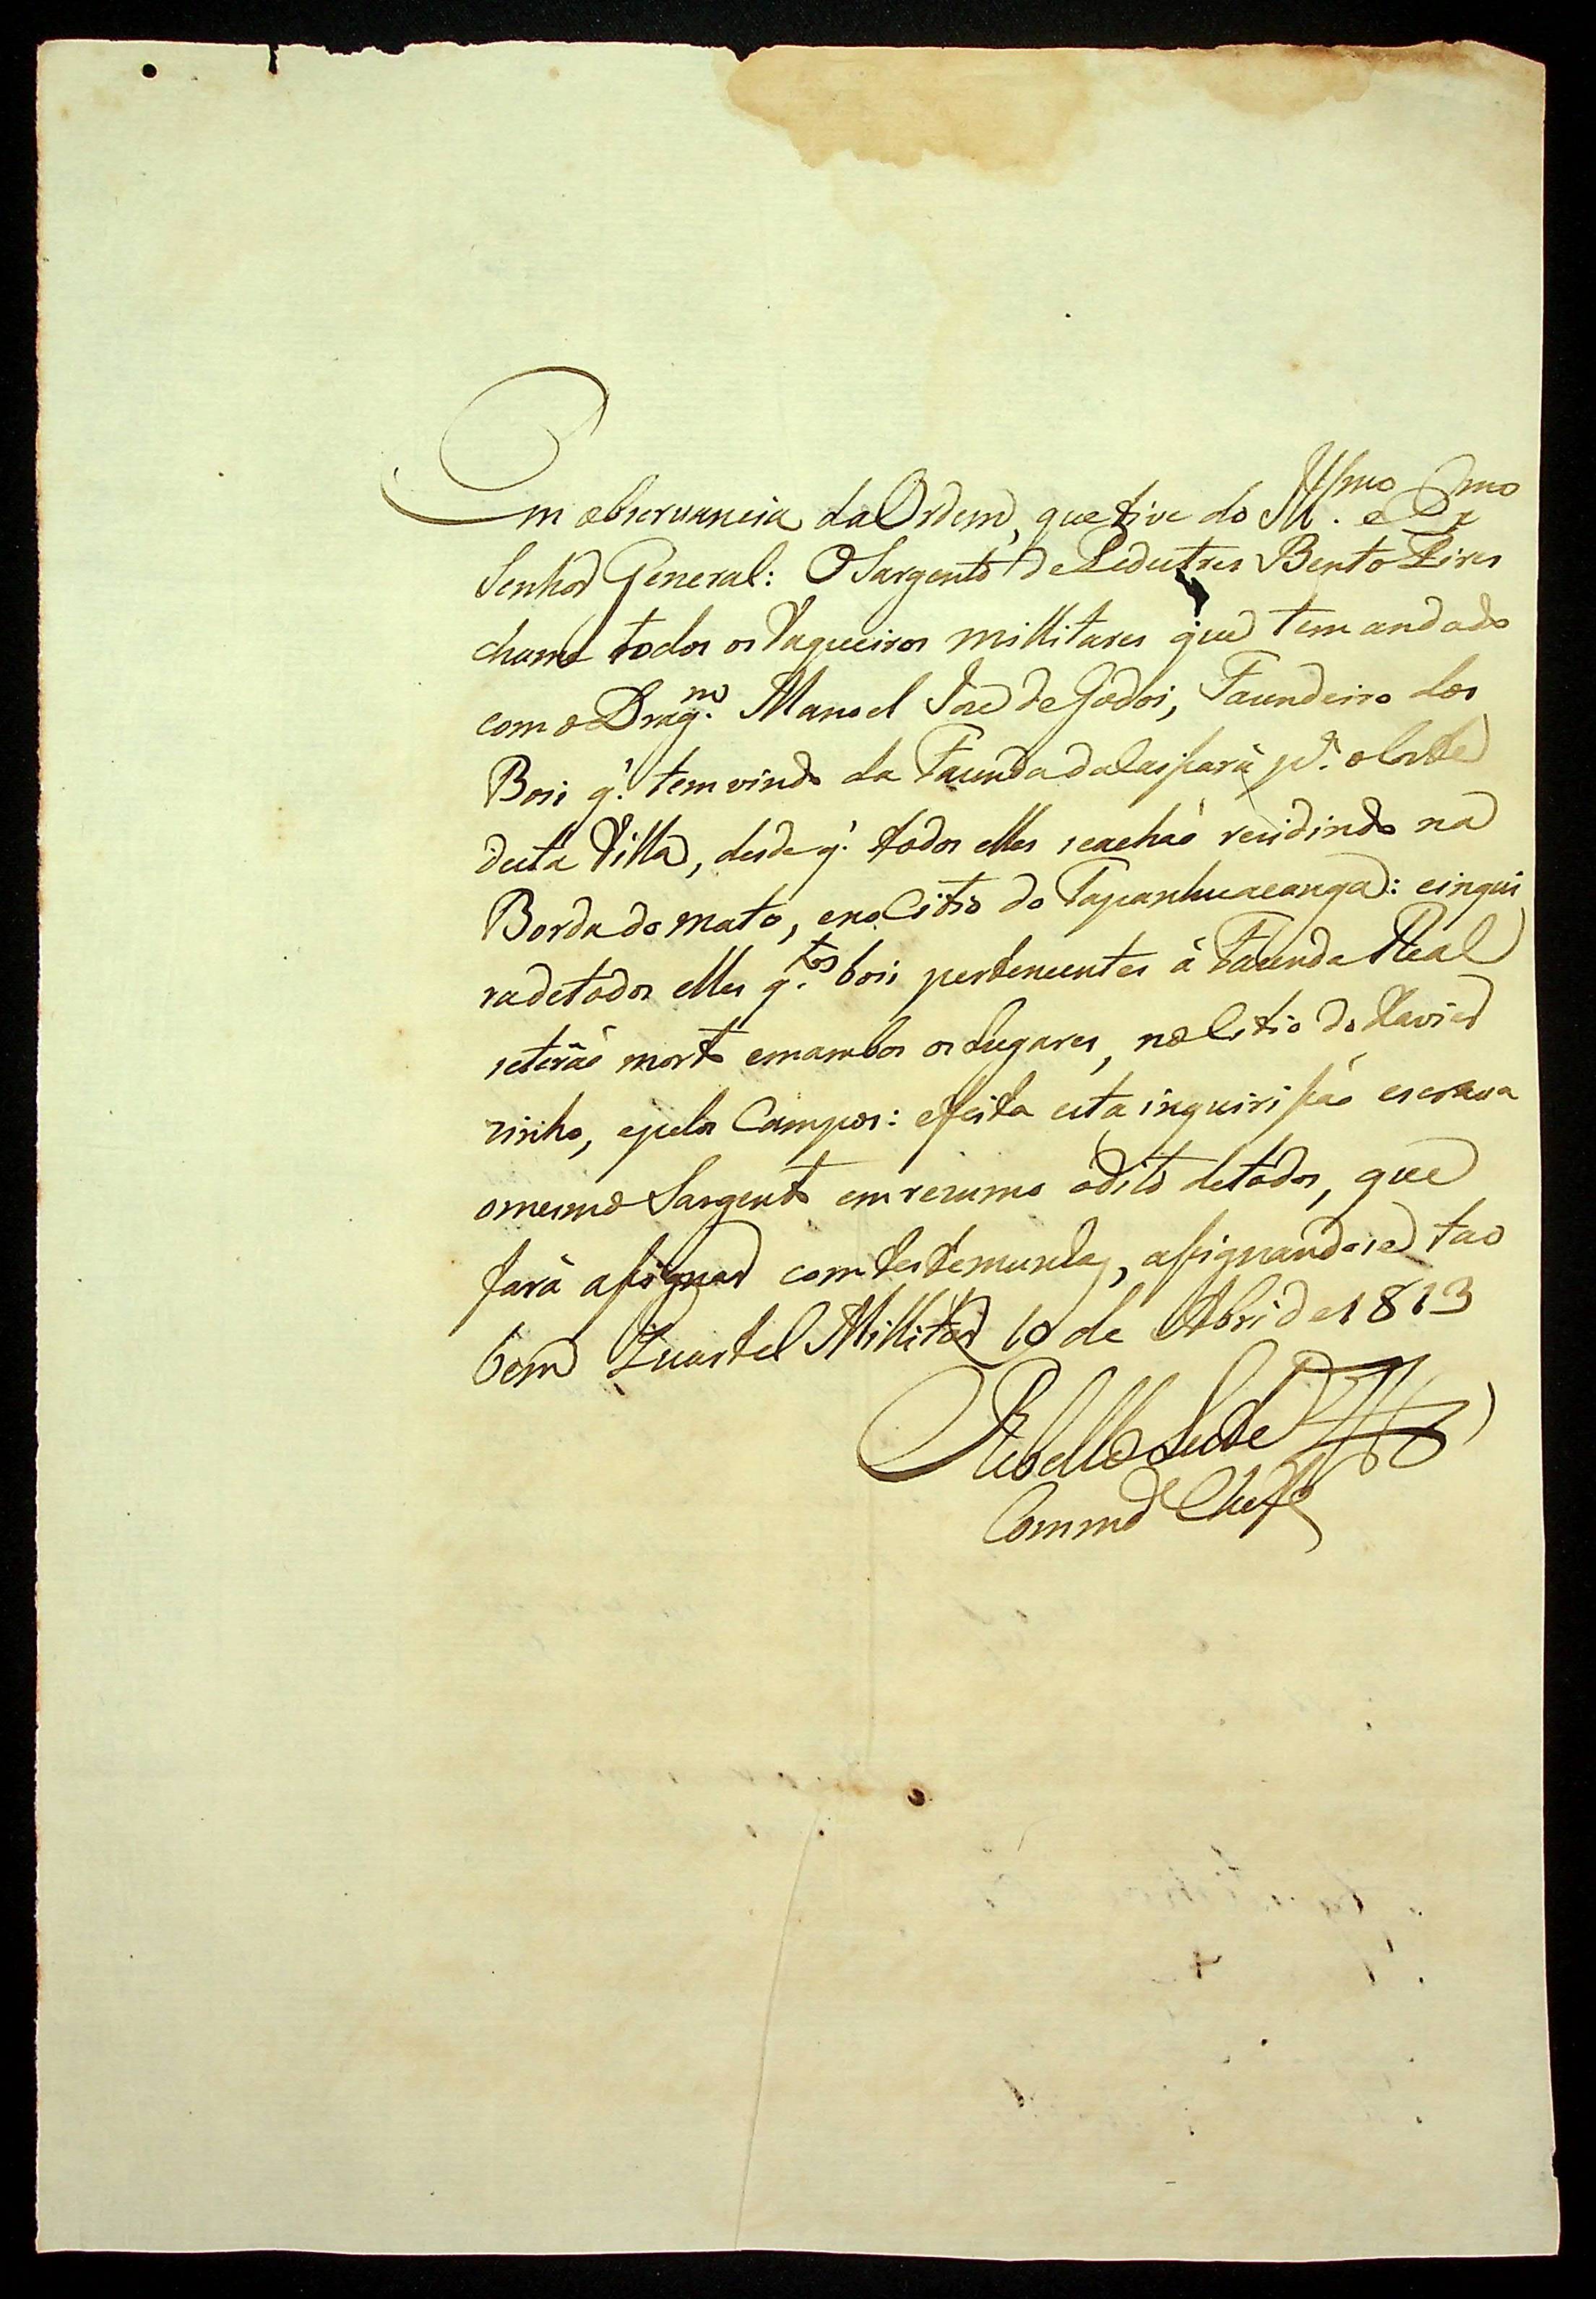 Em observancia da Ordem, que tive do Illmo. e Exmo
Senhor General: O Sargento de Pedestres Bento Pires
chame todos os Vaqueiros millitares que tem andado
com o Dragm. Manoel Joze de Godoi, Fazendeiro dos
Bois q' tem vindo da Fazenda da Caiſsara pa. o Corte
desta Villa, desde q' todos elles se achaõ rezidindo na
Borda do mato, e no Citio do Tapanhuacanga: e inqui
ra de todos elles q.tos bois pertencentes á Fazenda Real
se teraõ morto em ambos os Lugares, no Citio do Xavier
zinho, e pelos Campos: e feita esta inquiriſsaõ escreva
o mesmo Sargento em rezumo o dito de todos, que
fará aſsignar com testemunhas, aſsignando se tao
bem Quartel Millitar 10 de Abril de 1813
Rebello Leite
Commde Chefe